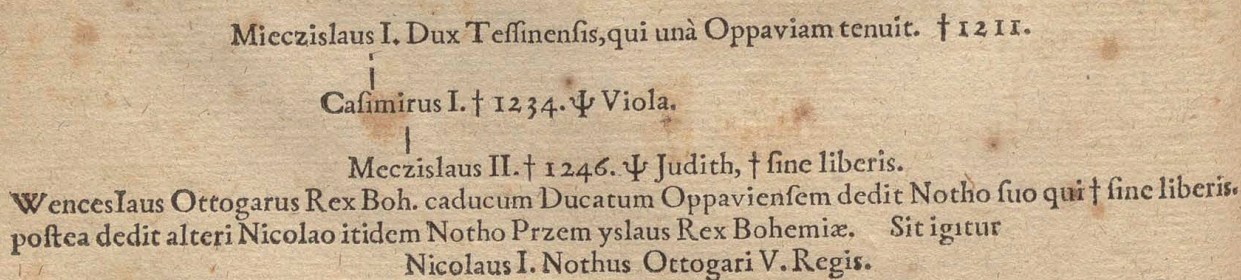 Mieczislaus I. Dux Teſſinenſis, qui unà Oppaviam tenuit. † 1211.
Caſimirus I. † 1234. Ψ Viola.
Meczislaus II. † 1246. Ψ Judith, † ſine liberis.
Wenceslaus Ottogarus Rex Boh. caducum Ducatum Oppavienſem dedit Notho ſuo qui † ſine liberis.
poſtea dedit alteri Nicolao itidem Notho Przem yslaus Rex Bohemiæ. Sit igitur
Nicolaus I. Nothus Ottogari V. Regis.